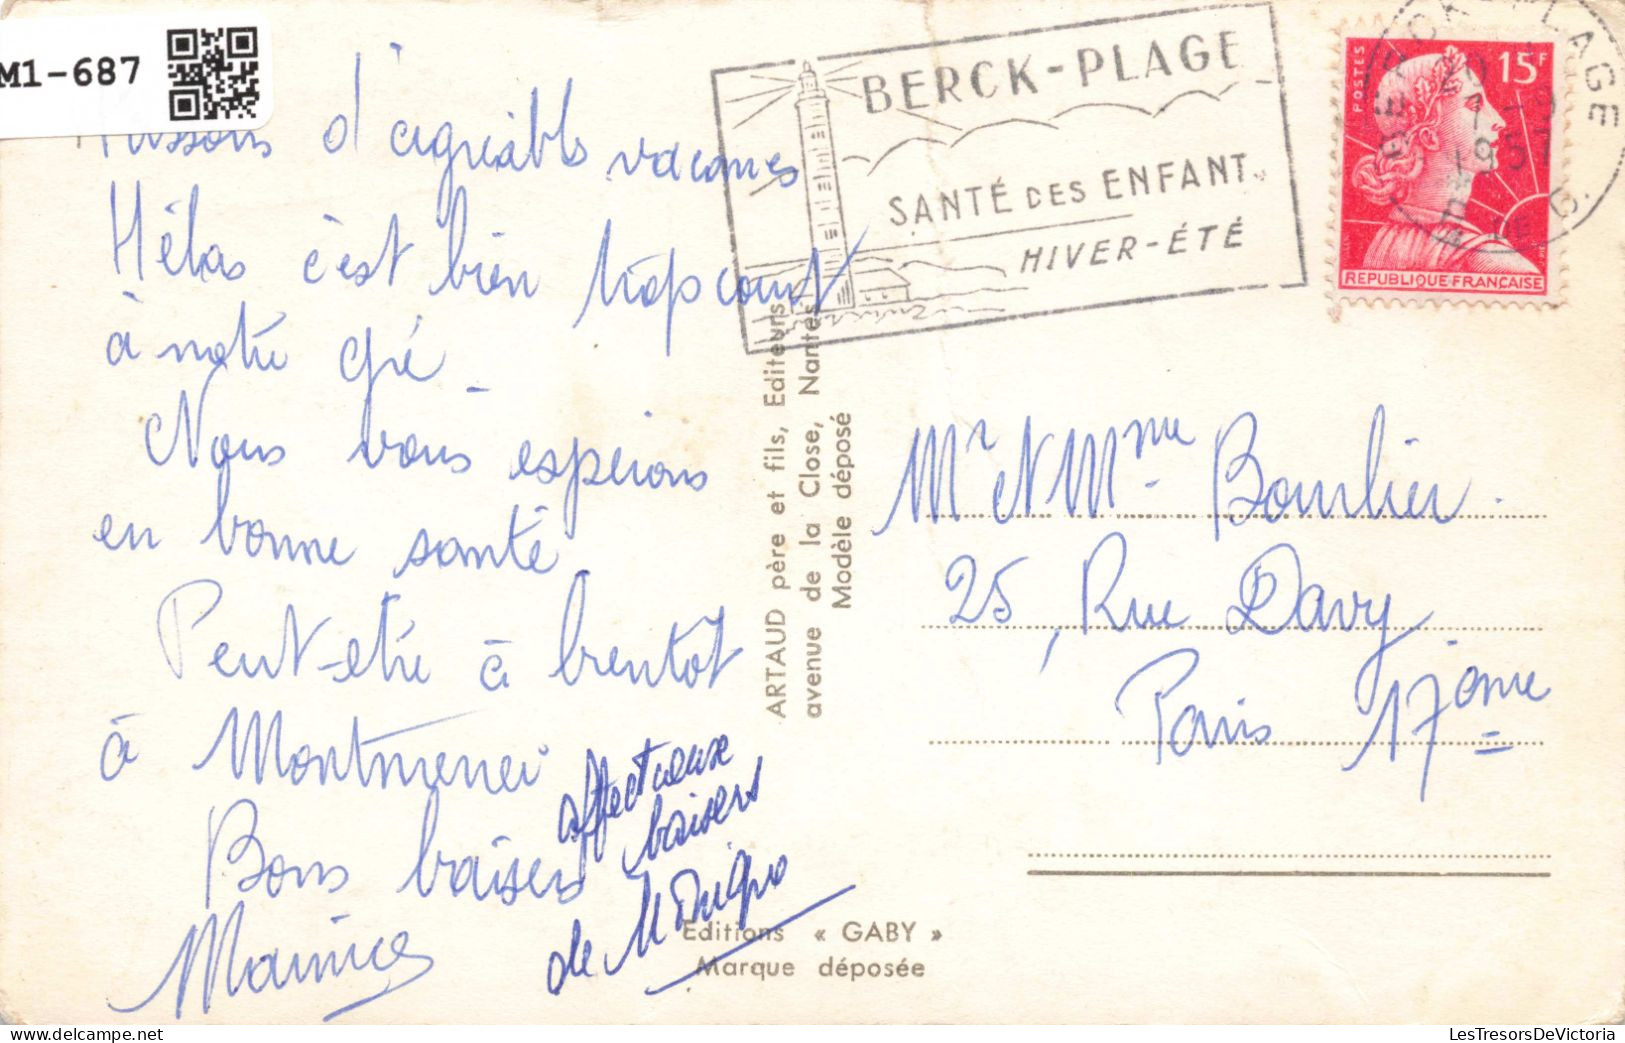 M1-687
Passons d'agréables vacances
Hélas c'est bien trop court
à notre gré
Nous vous espérons
en bonne santé
Peut-être à bientôt
à
Bons baisers
Maurice
affectueux
baisers
de Monique
BERCK-PLAGE
SANTÉ DES ENFANT
HIVER-ÉTÉ
POSTES
15F
REPUBLIQUE FRANÇAISE
PLAGE
20
1957
ARTAUD père et fils, Editeurs
avenue de la Close, Nantes
Modèle déposé
Mr et Mme Bourlier.
25, Rue Davy
Paris 17ème
Editions « GABY »
Marque déposée
LesTresorsDeVictoria